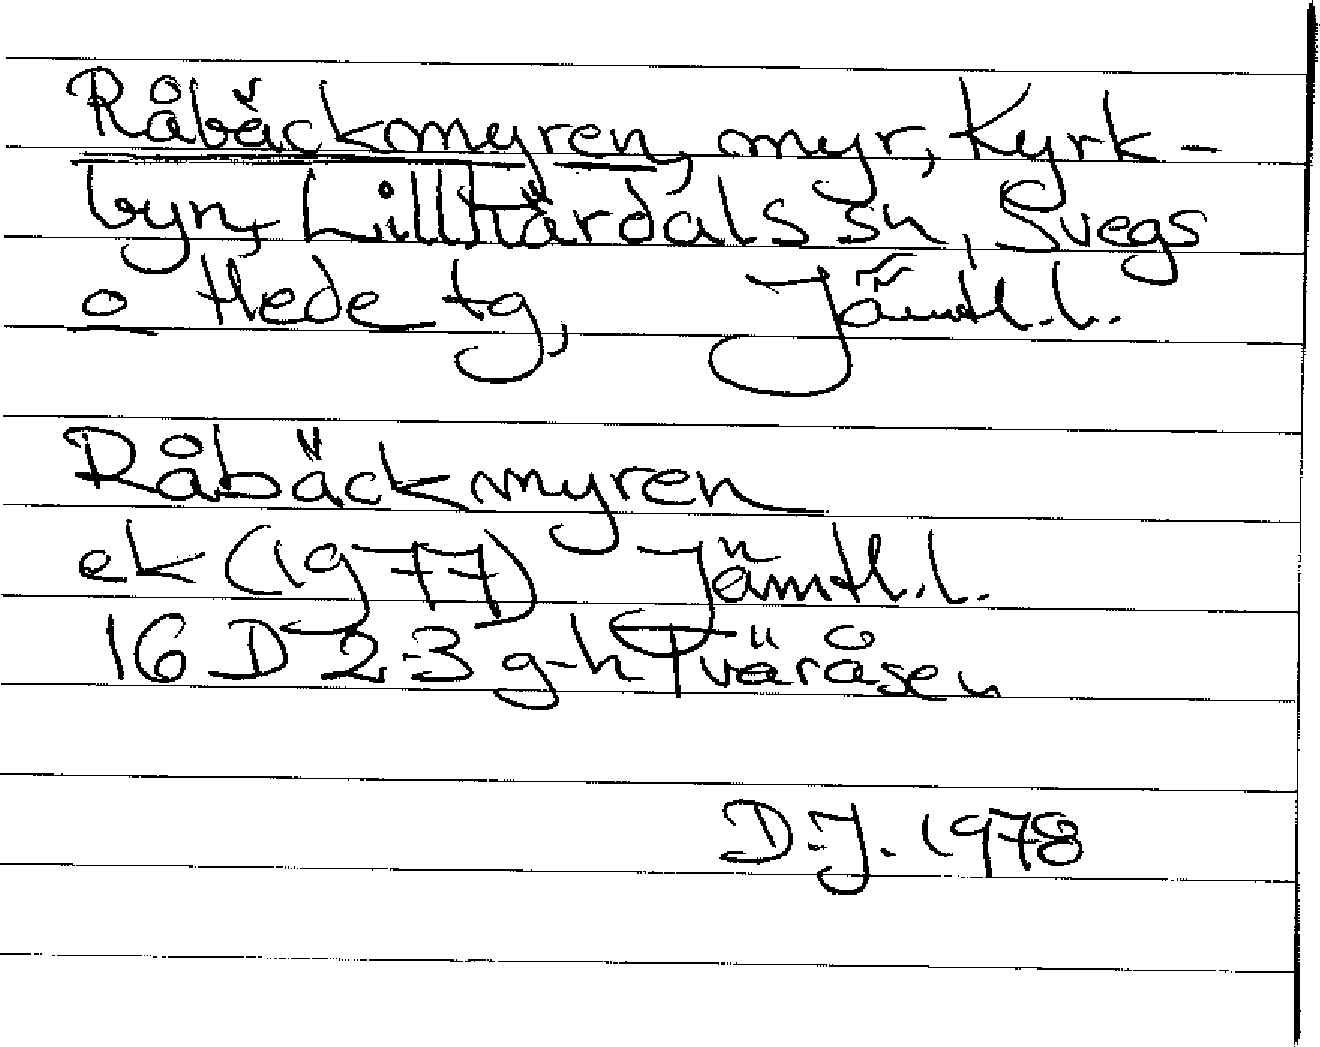 Råbäckmyren, myr, Kyrk-
byn, Lillhärdals sn, Svegs
o Hede tg, Jämtl.l.
Råbäckmyren
ek (1977) Jämtl.l.
16 D 2-3 g-h Tväråsen
D.J. 1978